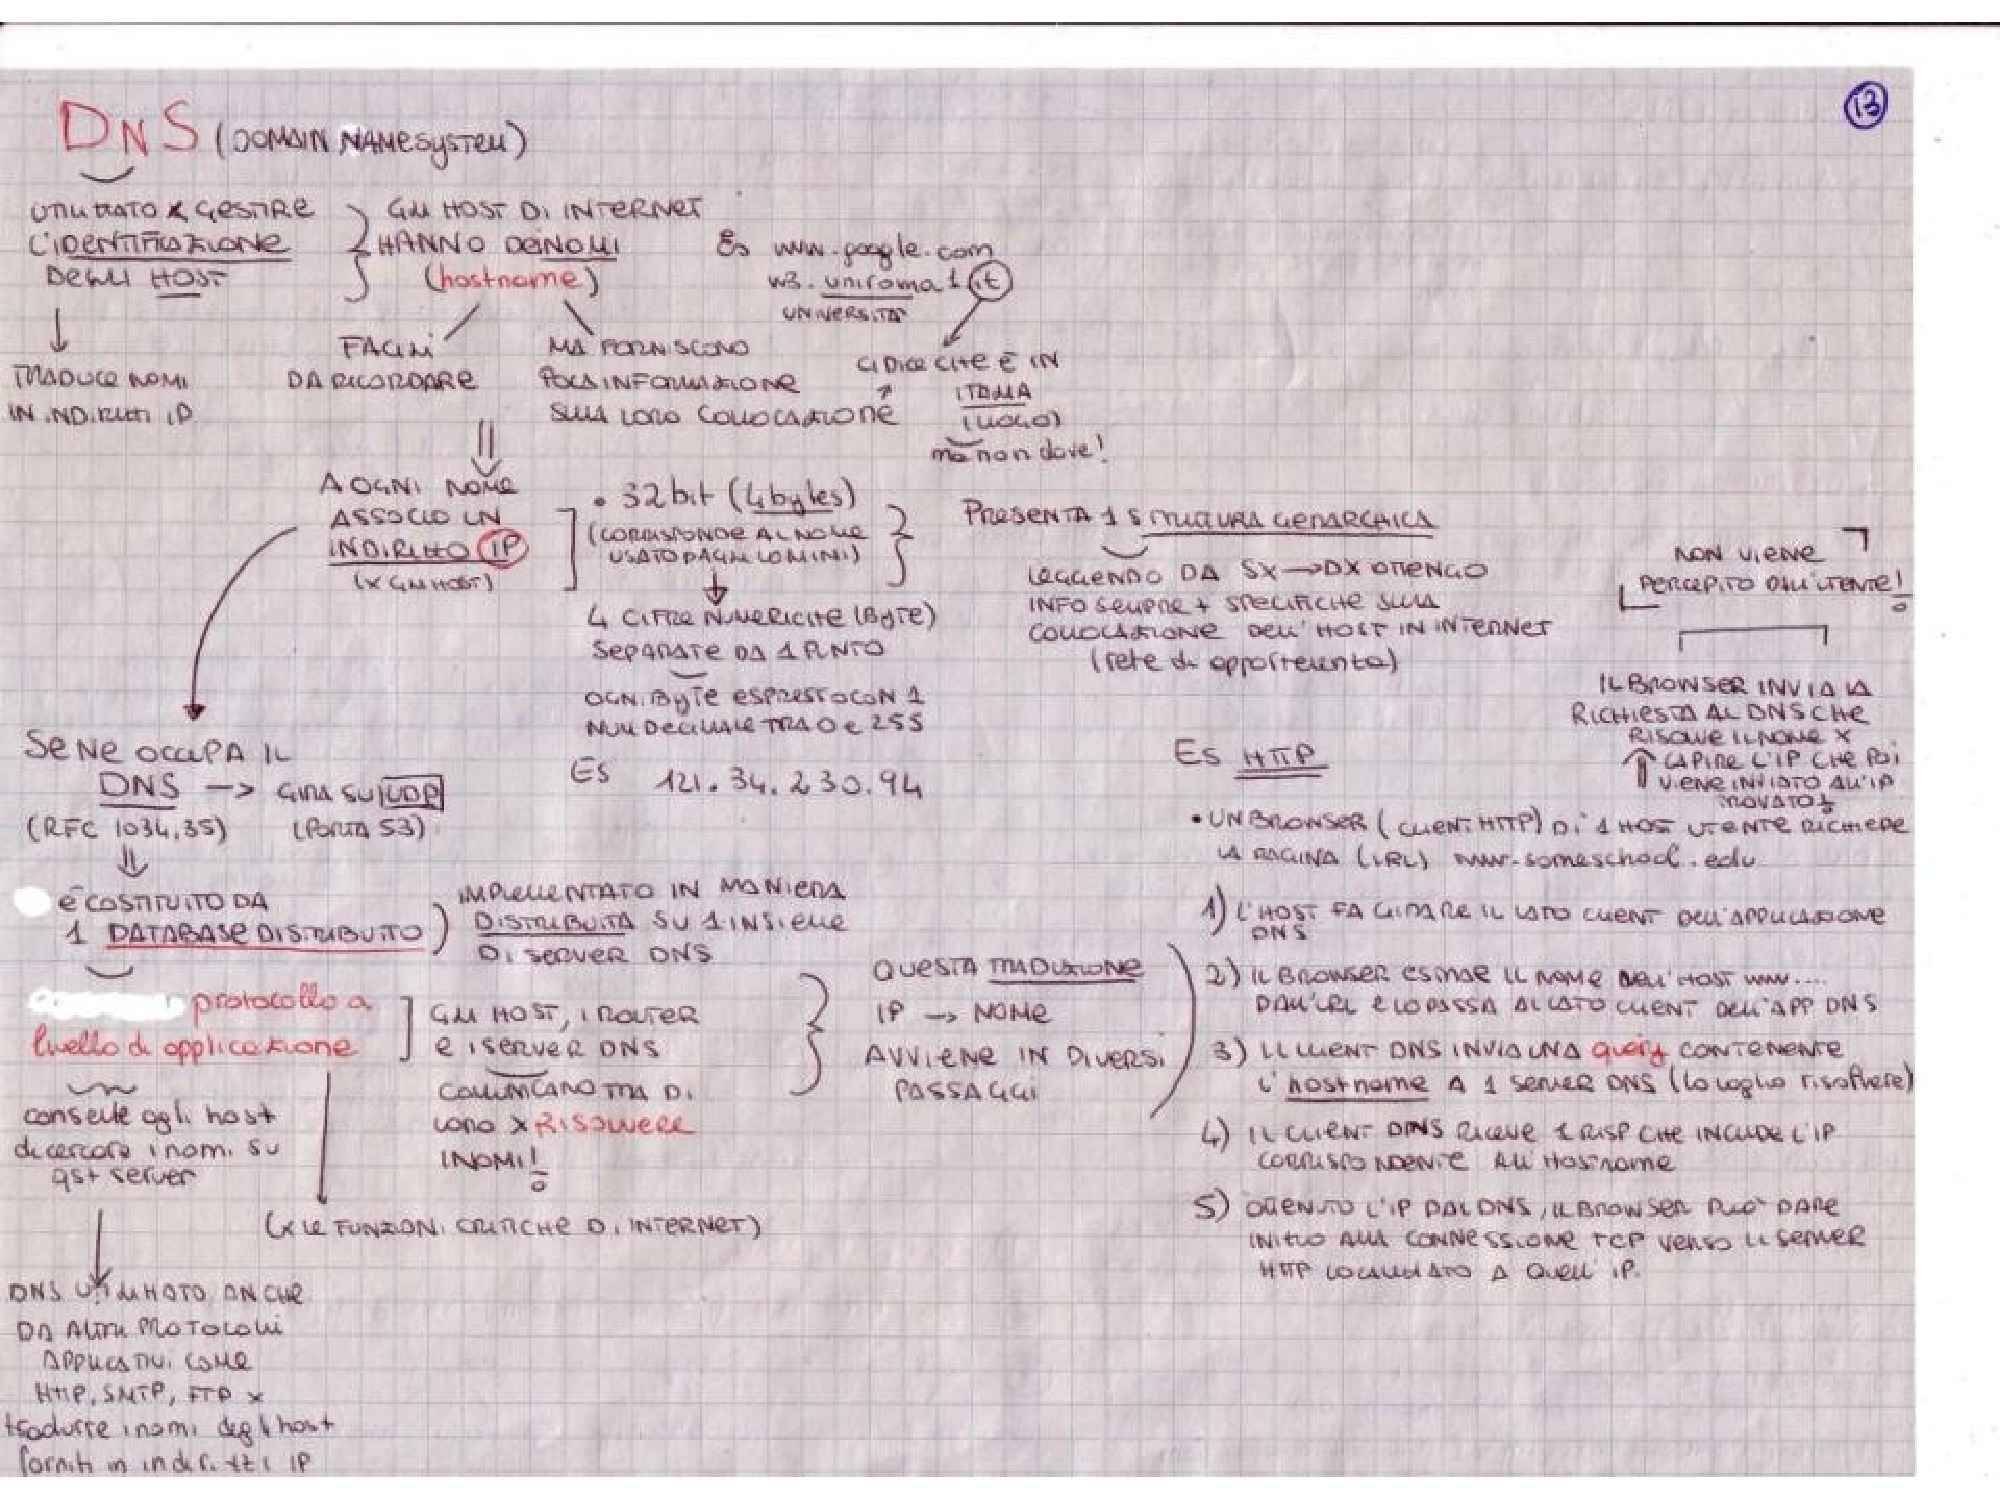 13
DNS (DOMAIN NAME SYSTEM)
UTILIZZATO X GESTIRE
L'IDENTIFICAZIONE
DEGLI HOST
GLI HOST DI INTERNET
HANNO DEI NOMI
(hostname)
ES www.google.com
w3.uniroma1.it
UNIVERSITÀ
TRADUCE NOMI
IN INDIRIZZI IP
FACILI
DA RICORDARE
MA FORNISCONO
POCA INFORMAZIONE
SULLA LORO COLLOCAZIONE
CI DICE CHE È IN
ITALIA
(LUOGO)
ma non dove!
A OGNI NOME
ASSOCIO UN
INDIRIZZO IP
(X GLI HOST)
• 32 bit (4 bytes)
(CORRISPONDE AL NOME
USATO DAGLI UOMINI)
4 CIFRE NUMERICHE (BYTE)
SEPARATE DA 1 PUNTO
OGNI BYTE ESPRESSO CON 1
NUM DECIMALE TRA 0 e 255
ES 121.34.230.94
PRESENTA 1 STRUTTURA GERARCHICA
LEGGENDO DA SX → DX OTTENGO
INFO SEMPRE + SPECIFICHE SULLA
COLLOCAZIONE DELL'HOST IN INTERNET
(rete di appartenenza)
NON VIENE
PERCEPITO DALL'UTENTE!
IL BROWSER INVIA LA
RICHIESTA AL DNS CHE
RISOLVE IL NOME X
CAPIRE L'IP CHE POI
VIENE INVIATO ALL'IP
TROVATO!
SE NE OCCUPA IL
DNS → GIRA SU UDP
(RFC 1034,35) (PORTA 53)
È COSTITUITO DA
1 DATABASE DISTRIBUITO
IMPLEMENTATO IN MANIERA
DISTRIBUITA SU 1 INSIEME
DI SERVER DNS
protocollo a
livello di applicazione
GLI HOST, I ROUTER
E I SERVER DNS
COMUNICANO TRA DI
LORO X RISOLVERE
I NOMI!
QUESTA TRADUZIONE
IP → NOME
AVVIENE IN DIVERSI
PASSAGGI
consente agli host
di cercare i nomi su
qst server
(X LE FUNZIONI CRITICHE DI INTERNET)
DNS UTILIZZATO ANCHE
DA ALTRI PROTOCOLLI
APPLICATIVI COME
HTTP, SMTP, FTP X
tradurre i nomi degli host
forniti in indirizzi IP
ES HTTP
• UN BROWSER (CLIENT HTTP) DI 1 HOST UTENTE RICHIEDE
LA PAGINA (URL) www.someschool.edu
1) L'HOST FA GIRARE IL LATO CLIENT DELL'APPLICAZIONE
DNS
2) IL BROWSER ESTRAE IL NOME DELL'HOST www....
DALL'URL E LO PASSA AL LATO CLIENT DELL'APP DNS
3) IL CLIENT DNS INVIA UNA query CONTENENTE
L'hostname A 1 SERVER DNS (lo voglio risolvere)
4) IL CLIENT DNS RICEVE 1 RISP CHE INCLUDE L'IP
CORRISPONDENTE ALL'HOSTNAME
5) OTTENUTO L'IP DAL DNS, IL BROWSER PUO' DARE
INIZIO ALLA CONNESSIONE TCP VERSO IL SERVER
HTTP LOCALIZZATO A QUELL'IP.